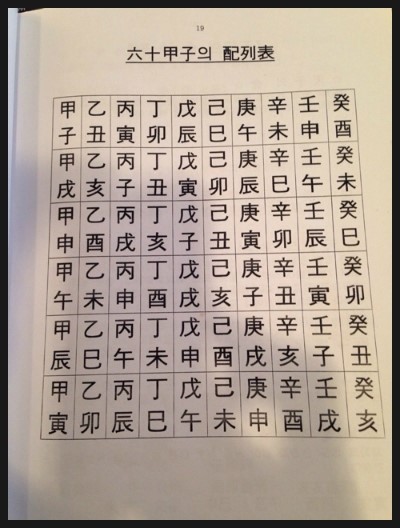 19
六十甲子의 配列表
甲 乙 丙 丁 戊 己 庚 辛 壬 癸
子 丑 寅 卯 辰 巳 午 未 申 酉
甲 乙 丙 丁 戊 己 庚 辛 壬 癸
戌 亥 子 丑 寅 卯 辰 巳 午 未
甲 乙 丙 丁 戊 己 庚 辛 壬 癸
申 酉 戌 亥 子 丑 寅 卯 辰 巳
甲 乙 丙 丁 戊 己 庚 辛 壬 癸
午 未 申 酉 戌 亥 子 丑 寅 卯
甲 乙 丙 丁 戊 己 庚 辛 壬 癸
辰 巳 午 未 申 酉 戌 亥 子 丑
甲 乙 丙 丁 戊 己 庚 辛 壬 癸
寅 卯 辰 巳 午 未 申 酉 戌 亥